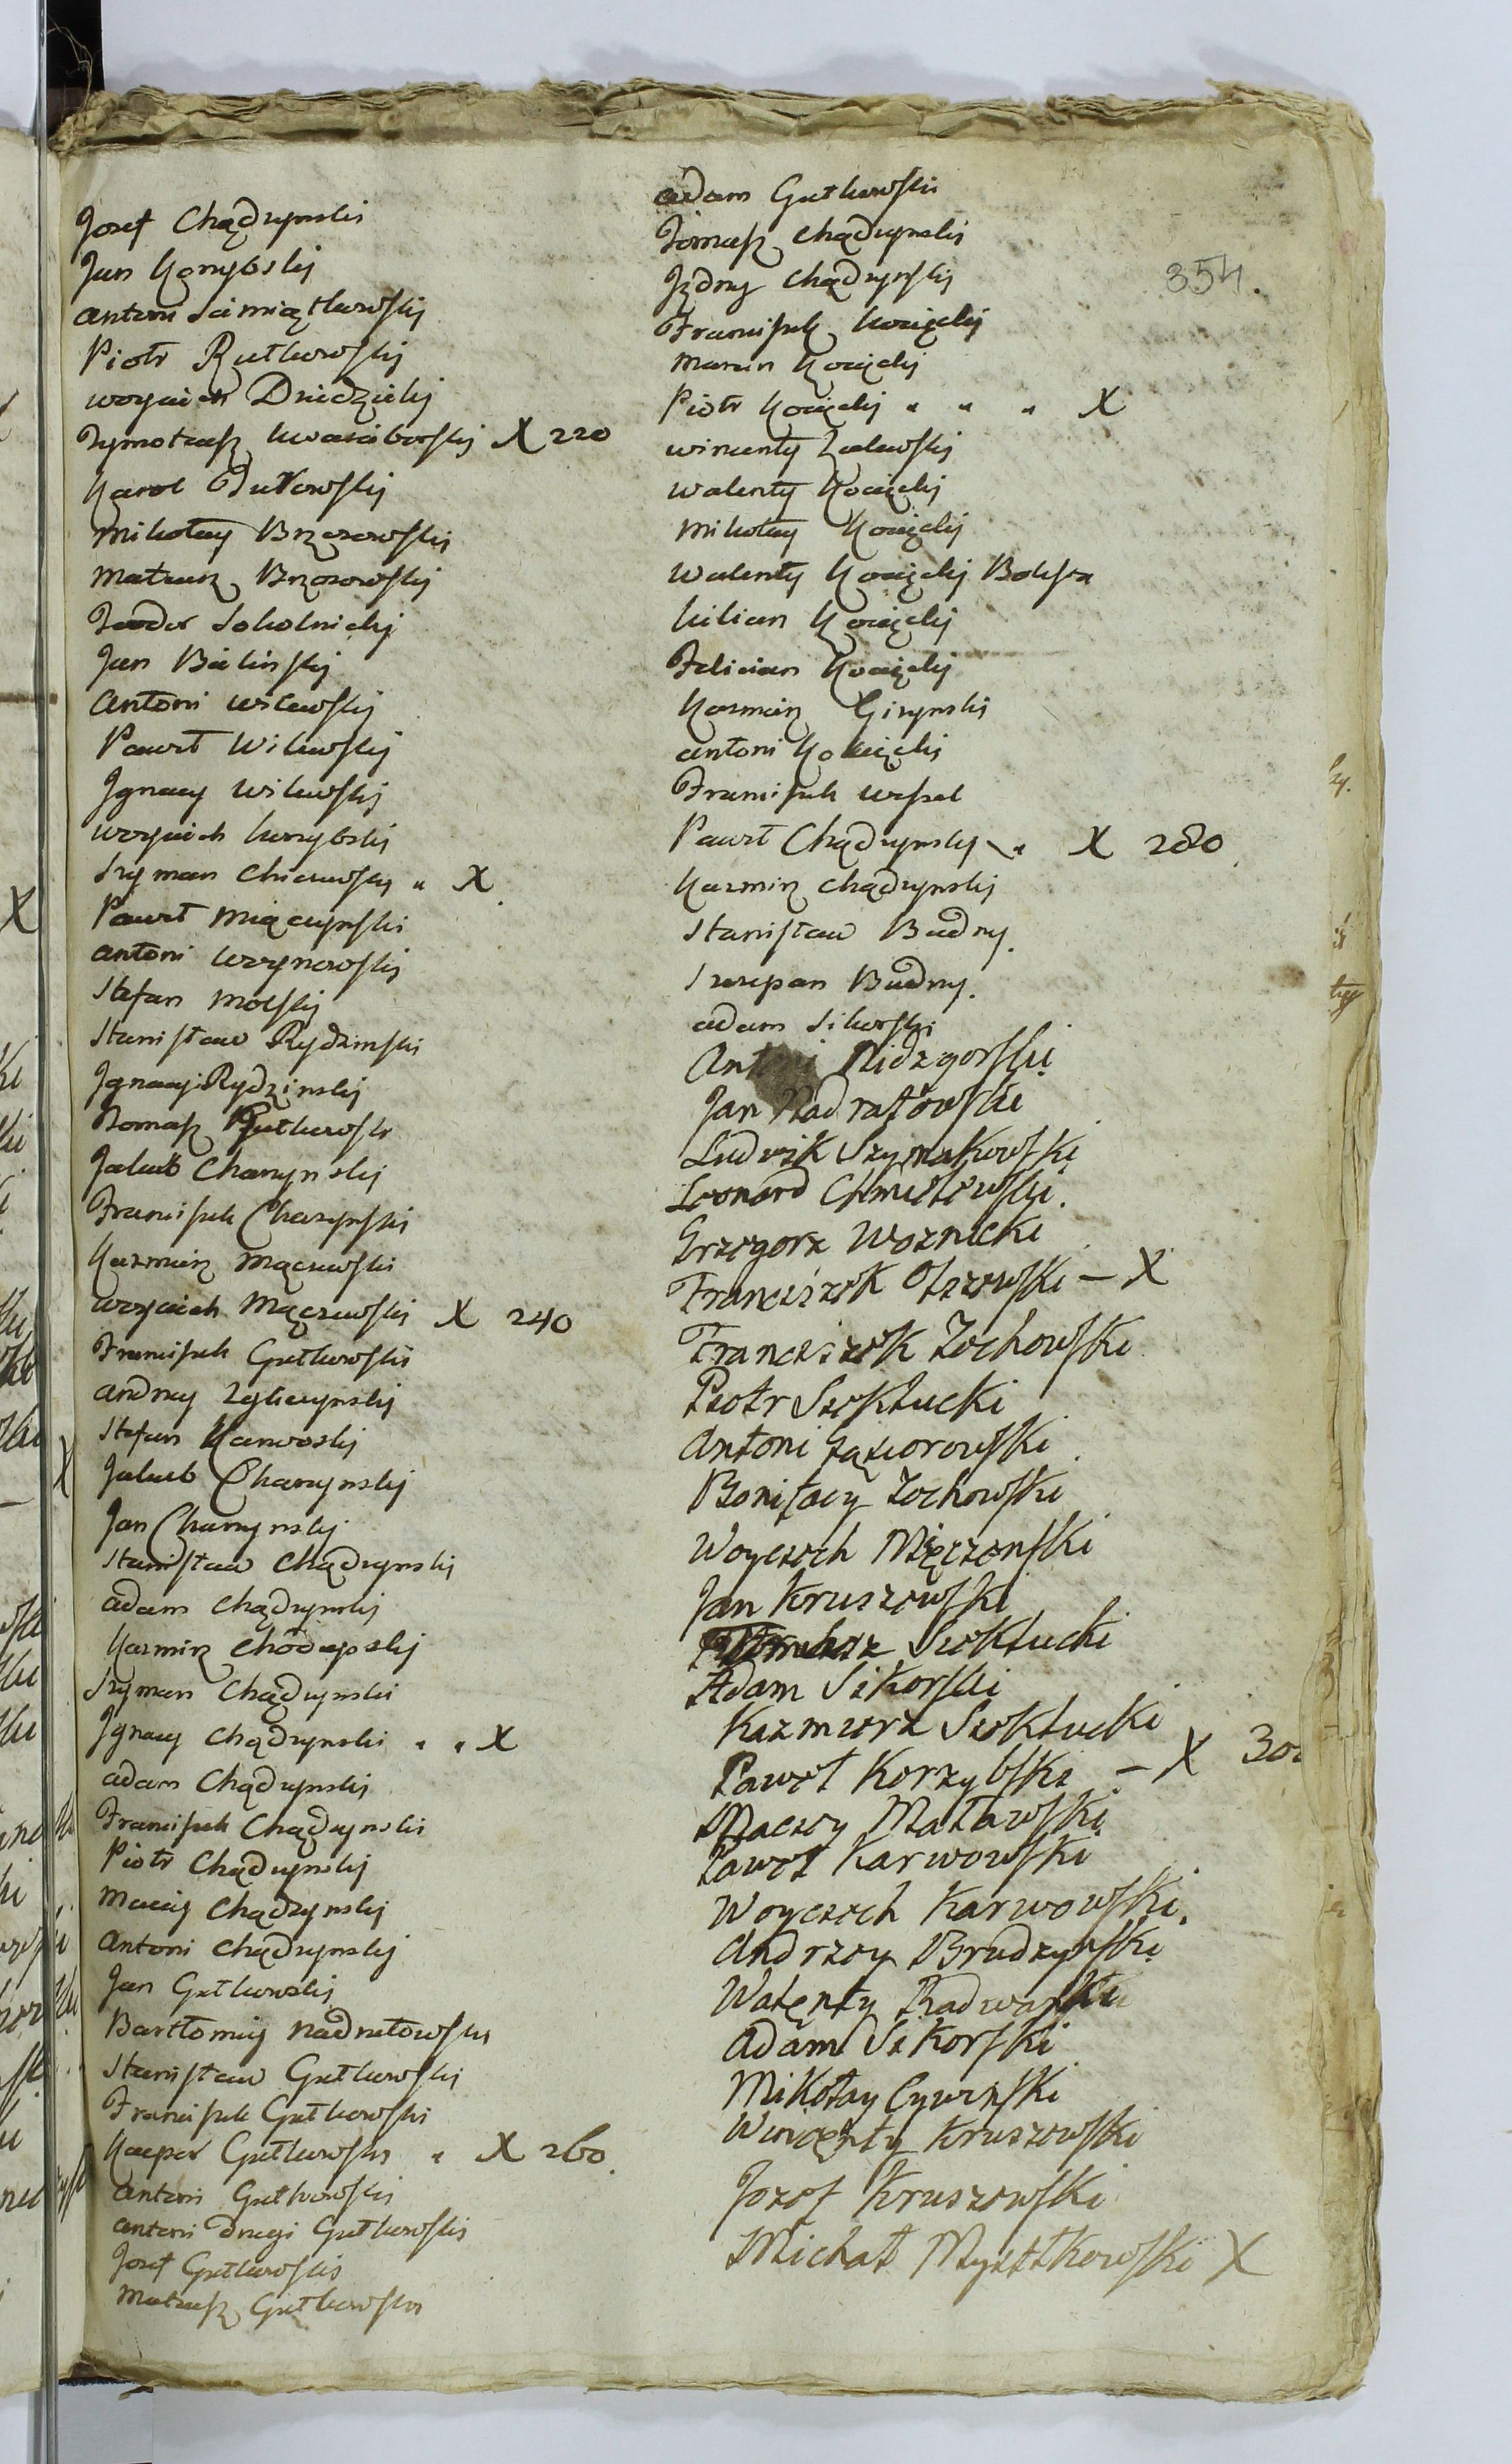 Jozef Chądzynski
Jan Korzybskj
antoni Swiniątkowskj
Piotr Rutkowskj
woyciech Dziedzickj
Tymoteusz kwasiborskj X 220
Karol Butkowskj
Mikołay Brzozowskj
Mateusz Brzozowskj
Teodor Sokolnickj
Jan Bielinskj
Antoni wilewskj
Paweł Wilewskj
Jgnacy Wilewskj
woyciech korzybskj
Szyman Chiczewskj " X
Paweł Miączynskj
antoni
Stefan Molskj
Stanisław Rydzinski
Jgnacy Rydzinskj
Tomasz Gutkowski
Jakub Charzynskj
Franciszek Charzynskj
Kazmierz Mączewski
woyciech Mączewskj X 240
Franciszek Gutkowski
andrzy Zgliczynskj
Stefan Karwoskj
Jakub Charzynskj
Jan Charzynskj
Stanisław Chądzynski
adam Chądzynskj
Kazmirz
Szyman Chądzynski
Jgnacy Chądzynski " " X
adam Chądzynskj
Franciszek Chądzynski
Piotr Chądzynskj
Maciej Chądzynskj
Antoni Chądzynskj
Jan Gutkowskj
Bartłomiej Nadratowski
Stanisław Gutkowskj
Franciszek Gutkowski
Kacper Gutkowski " X 260
antoni Gutkowski
antoni drugi Gutkowski
Jozef Gutkowski
Mateusz Gutkowski
adam Gutkowski
Tomasz Chądzynskj
Jędrzy Chądzynskj
Franciszek kocięckj
Marcin Kocięckj
Piotr Kocięckj " " " X
wincenty Zalewskj
Walenty Kocięckj
Mikołay Kocięckj
Walenty Kocięckj Bolesta
kilian Kocięckj
Felician Kocięckj
Kazmirz Girzynskj
antoni Kocięckj
Franciszek Wessel
Paweł Chądzynskj " X 280
Kazmirz Chądzynskj
Stanisław Budny.
Szczepan Budny.
adam Sikorski
Antoni Nidzgorski
Jan Nadratowski
Ludwik Szymakowski
Leonard Chmielewski.
Grzegorz Woznicki
Franciszek Olszewski – X
Franciszek Żochowski
Piotr Szokłucki
Antoni Gąsiorowski
Bonifacy Żochowski
Woyciech Mięczenski
Jan Kruszewski
Tomasz Szokłucki
Adam Sikorski
Kazmierz Szokłucki
Paweł Korzybski – X 300
Maciey Maławski
Paweł Karwowski
Woyciech Karwowski.
Andrzey Brudzynski
Walenty Radwanski
Adam Sikorski
Mikołay Cywinski
Wincenty Kruszewski
Jozef Kruszewski
Michał Mystkowski X
354.